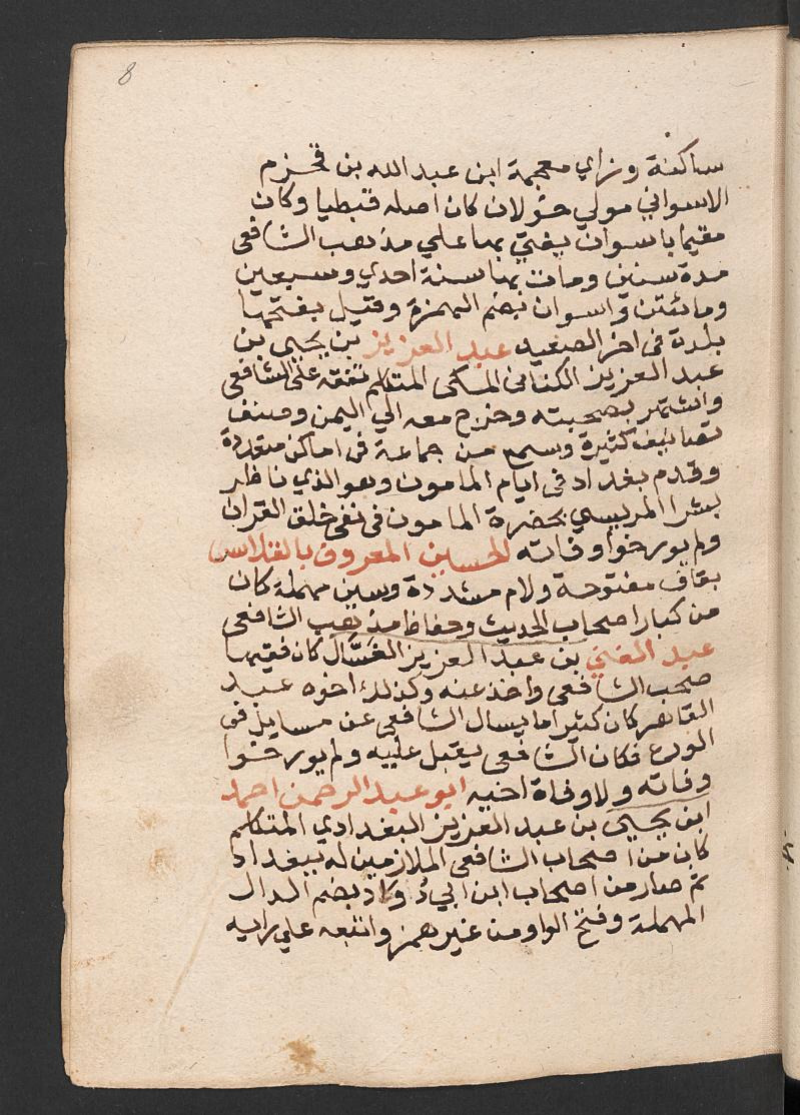 8
ساكنة وزاي معجمة ابن عبد الله بن قحزم
الاسواني مولي خولان كان اصله قبطيا وكان
مقيما باسوان يفتي بها علي مذهب الشافعي
مدة سنين ومات بها سنة احدي وسبعين
ومائتين واسوان بضم الهمزة وقيل بفتحها
بلدة في اخر الصعيد عبد العزيز بن يحيي بن
عبد العزيز الكناني المكي المتكلم تفقه علي الشافعي
واشتهر بصحبته وخرج معه الي اليمن وصنف
تصانيف كثيرة وسمع من جماعة في اماكن متعددة
وقدم بغداد في ايام المامون وهو الذي ناظر
بشرا المريسي بحضرة المامون في نفي خلق القران
ولم يورخوا وفاته الحسين المعروف بالقلاس
بقاف مفتوحة ولام مشددة وسين مهملة كان
من كبار اصحاب الحديث وحفاظ مذهب الشافعي
عبد الغني بن عبد العزيز الغسّال كان فقيها
صحب الشافعي واخذ عنه وكذلك اخوه عبد
القاهر كان كثيرا ما يسال الشافعي عن مسايل في
الورع فكان الشافعي يقبل عليه ولم يورخوا
وفاته ولا وفاة اخيه ابو عبد الرحمن احمد
ابن يحيي بن عبد العزيز البغدادي المتكلم
كان من اصحاب الشافعي الملازمين له ببغداد
ثم صار من اصحاب ابن ابي دُواد بضم الدال
المهملة وفتح الواو من غير همز واتبعه علي رايه